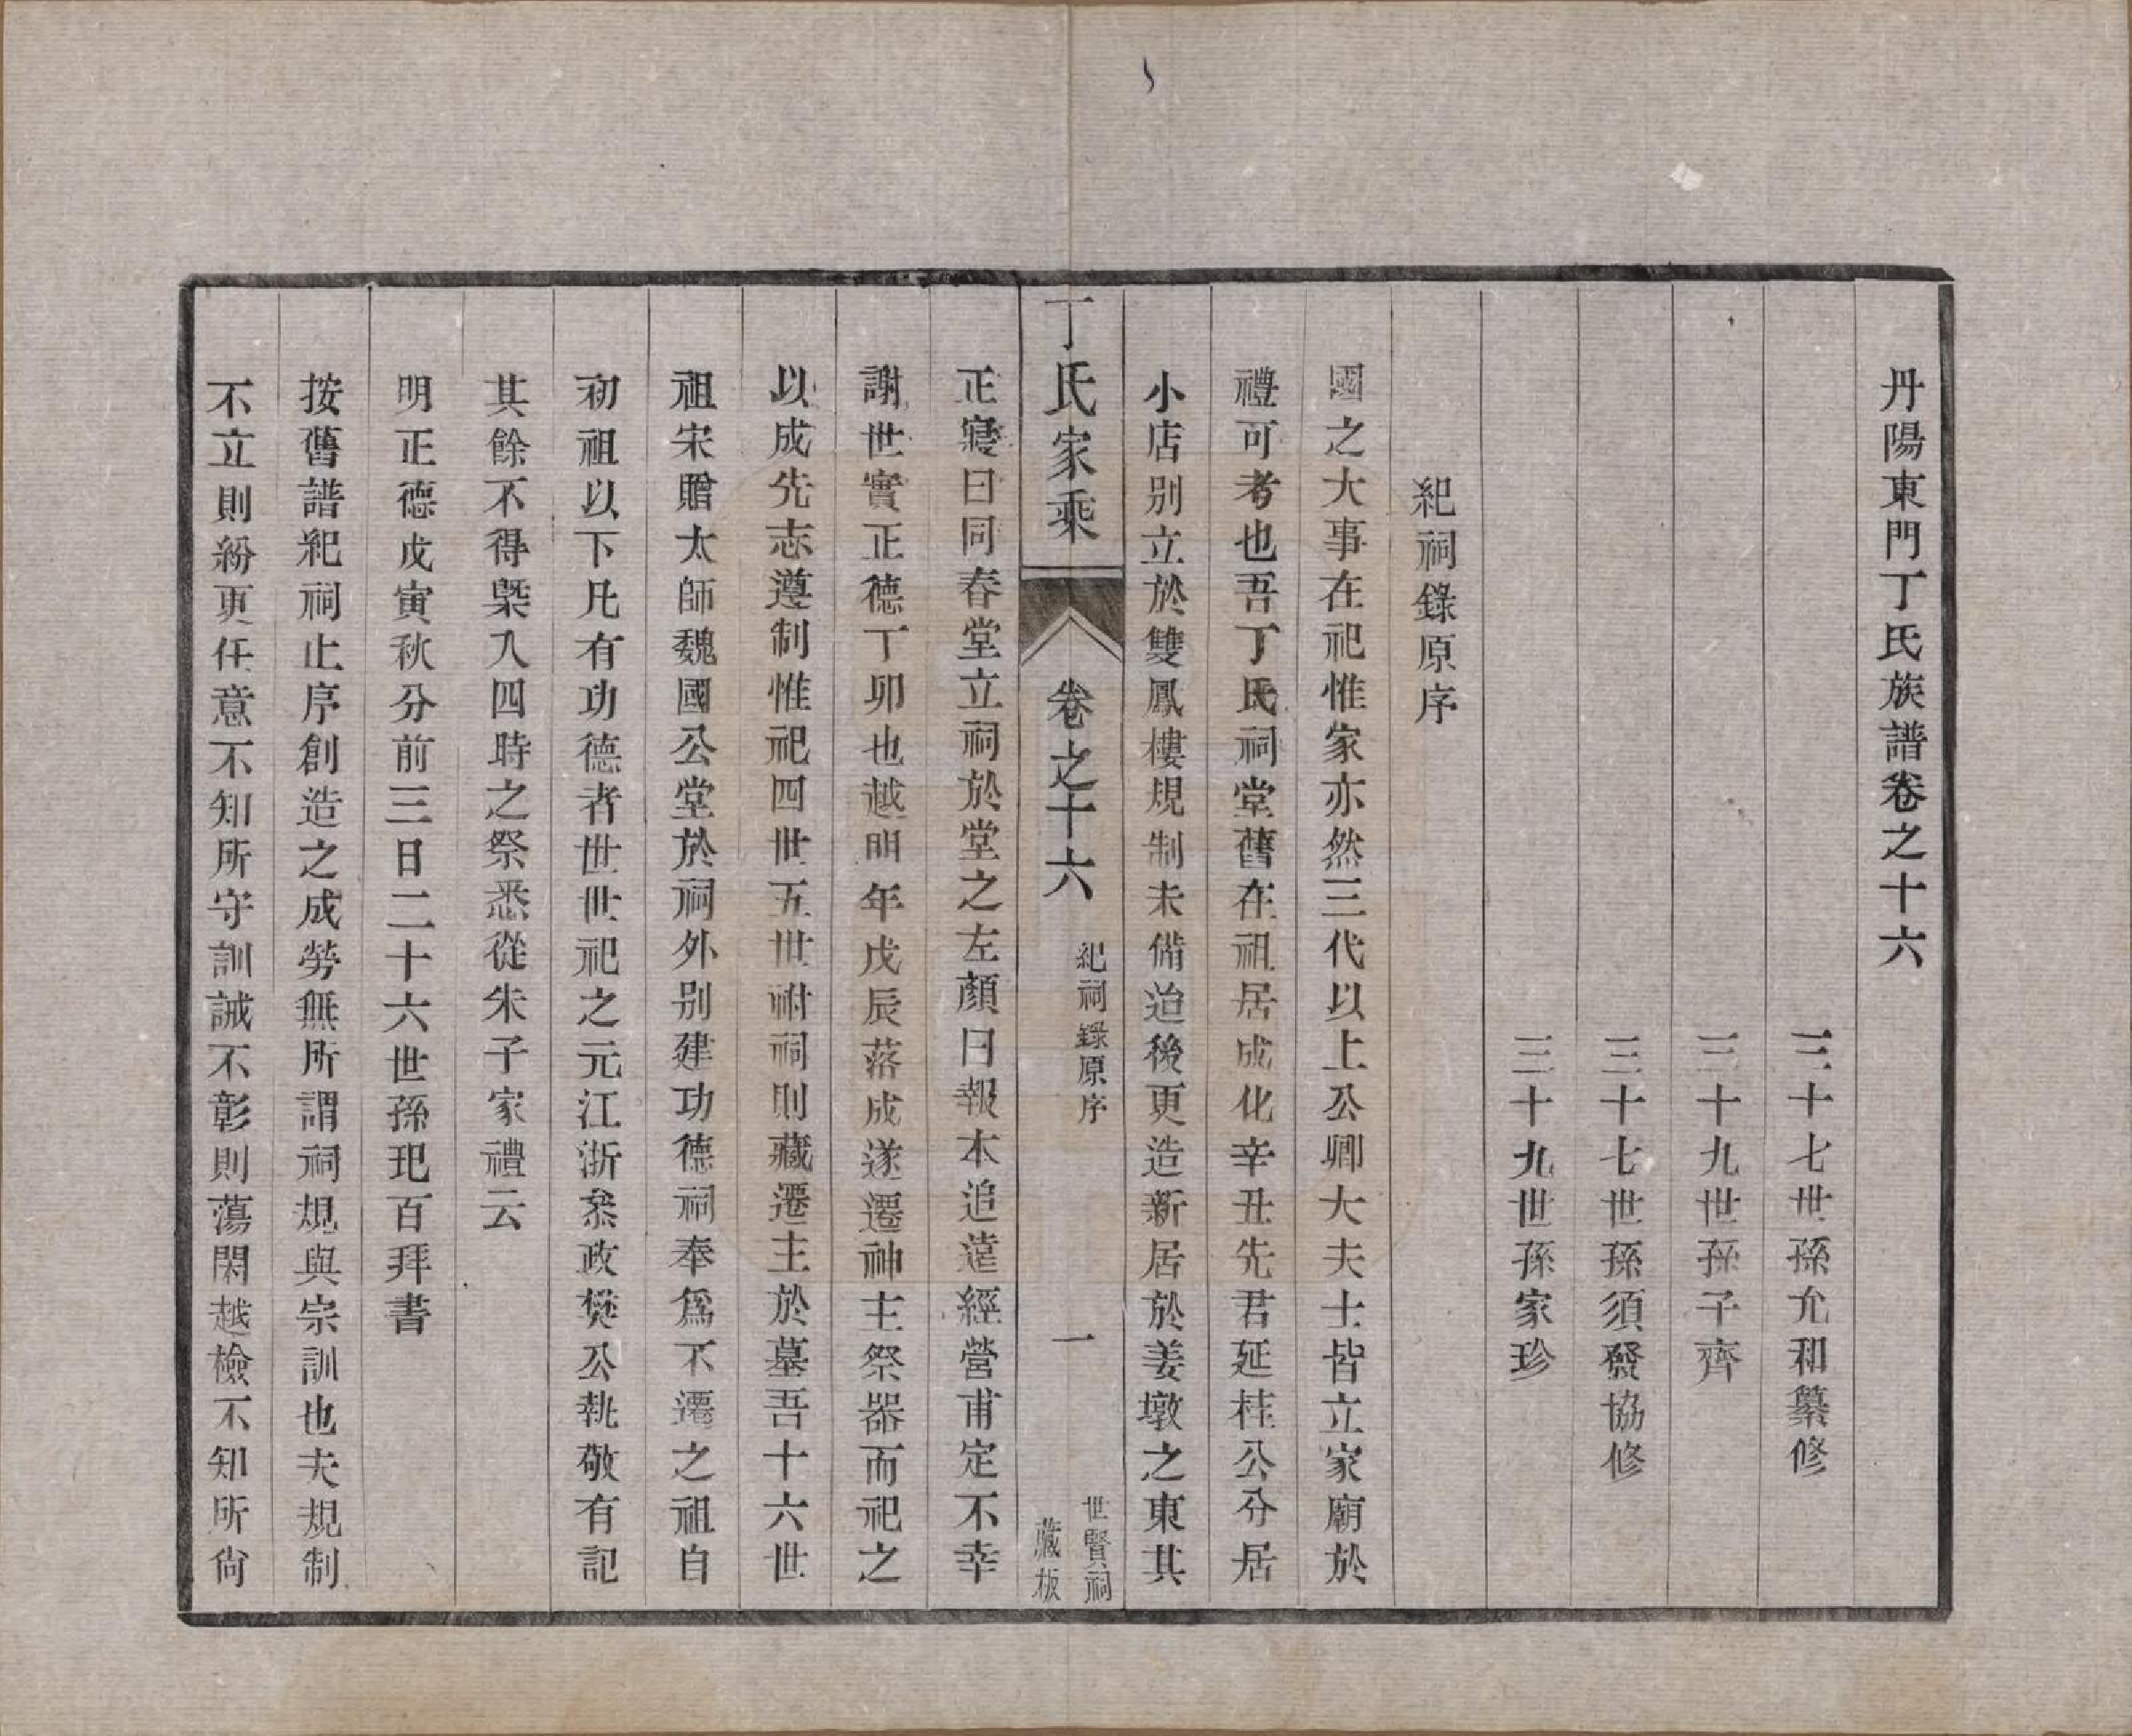 丹陽東門丁氏族譜卷之十六
三十七世孫允和纂修
三十九世孫子齊
三十七世孫須發協修
三十九世孫家珍
紀祠錄原序
國之大事在祀惟家亦然三代以上公卿大夫士皆立家廟於
禮可考也吾丁氏祠堂舊在祖居成化辛丑先君延桂公分居
小店别立於雙鳳樓規制未備迨後更造新居於姜墩之東其
丁氏家乘
卷之十六
紀祠錄原序
一
世賢祠
藏板
正寢曰同春堂立祠於堂之左顏曰報本追遠經營甫定不幸
謝世實正德丁卯也越明年戊辰落成遂遷神主祭器而祀之
以成先志遵制惟祀四世五世祔祠則藏遷主於墓吾十六世
祖宋贈太師魏國公堂於祠外别建功德祠奉爲不遷之祖自
初祖以下凡有功德者世世祀之元江浙叅政樊公執敬有記
其餘不得槩入四時之祭悉從朱子家禮云
明正德戊寅秋分前三日二十六世孫玘百拜書
按舊譜紀祠止序創造之成勞無所謂祠規與宗訓也夫規制
不立則紛更任意不知所守訓誡不彰則蕩閑越檢不知所尙